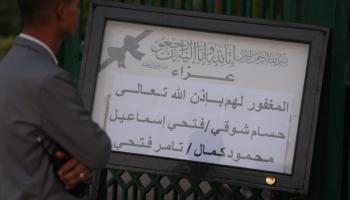 إنا لله وإنا إليه راجعون
عزاء
المغفور لهم بإذن الله تعالى
حسام شوقي / فتحي إسماعيل
محمود كمال / تامر فتحي